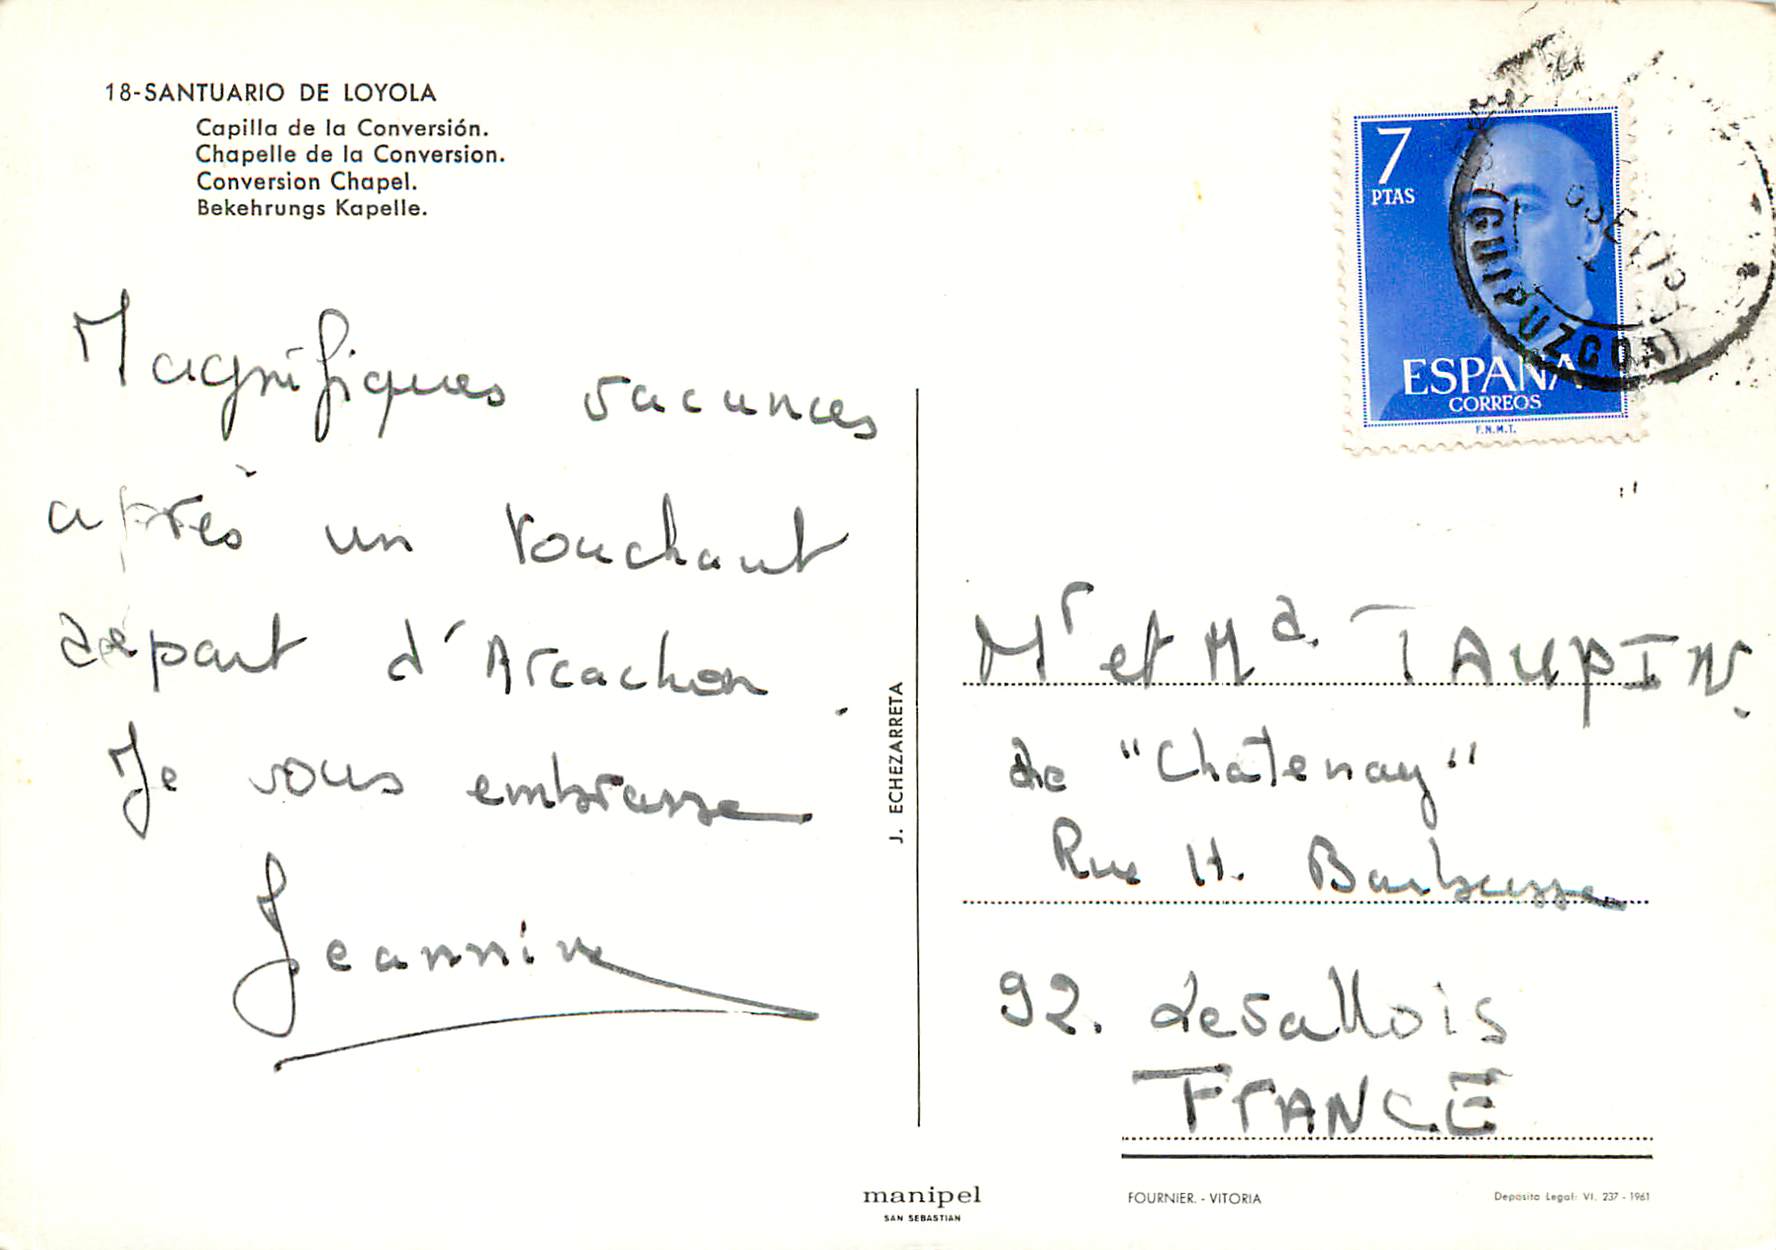 18-SANTUARIO DE LOYOLA
Capilla de la Conversión.
Chapelle de la Conversion.
Conversion Chapel.
Bekehrungs Kapelle.
Magnifiques vacances
après un touchant
départ d'Arcachon.
Je vous embrasse
Jeannine
J. ECHEZARRETA
7
PTAS
ESPAÑA
CORREOS
F.N.M.T.
(GUIPUZCOA)
Mr et Md. TAUPIN.
de "Chatenay"
Rue H. Barbusse
92. Levallois
FRANCE
manipel
SAN SEBASTIAN
FOURNIER. - VITORIA
Deposito Legal: VI. 237 - 1961